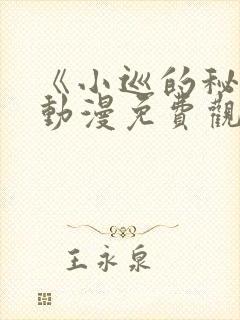 《小巡的秘
動漫免費觀
王永泉